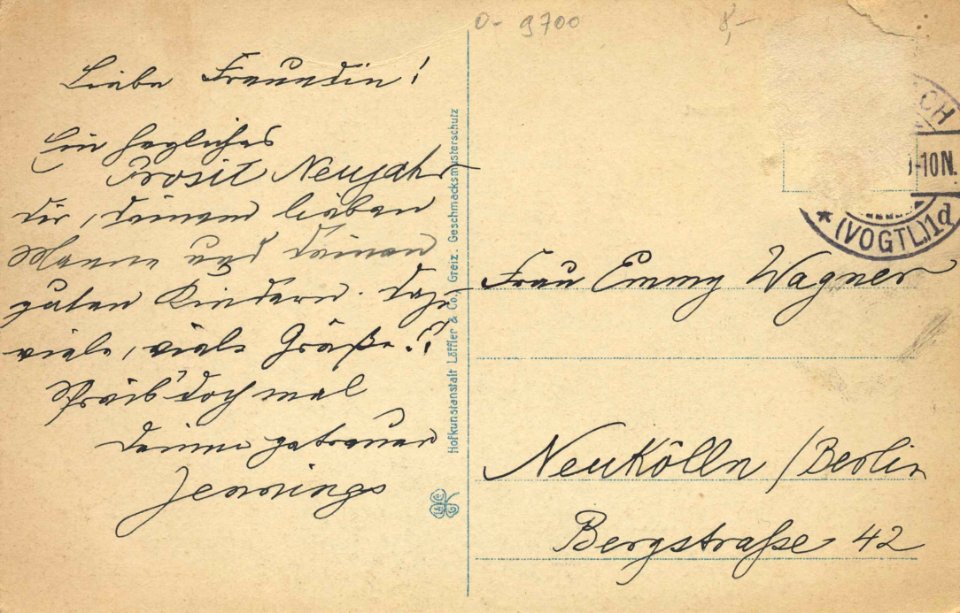 O- 9700
8,-
Liebe Freundin!
Ein herzliches
Prosit Neujahr
Dir, Deinem lieben
Manne und Deinen
guten Kindern. Dazu
viele, viele Grüße.
Schreib' doch mal
Deiner getreuen
Jennings
Hofkunstanstalt Löffler & Co., Greiz. Geschmacksmusterschutz
CH
-10N.
* (VOGTL.) 1d
Frau Emmy Wagner
Neukölln / Berlin
Bergstraße 42